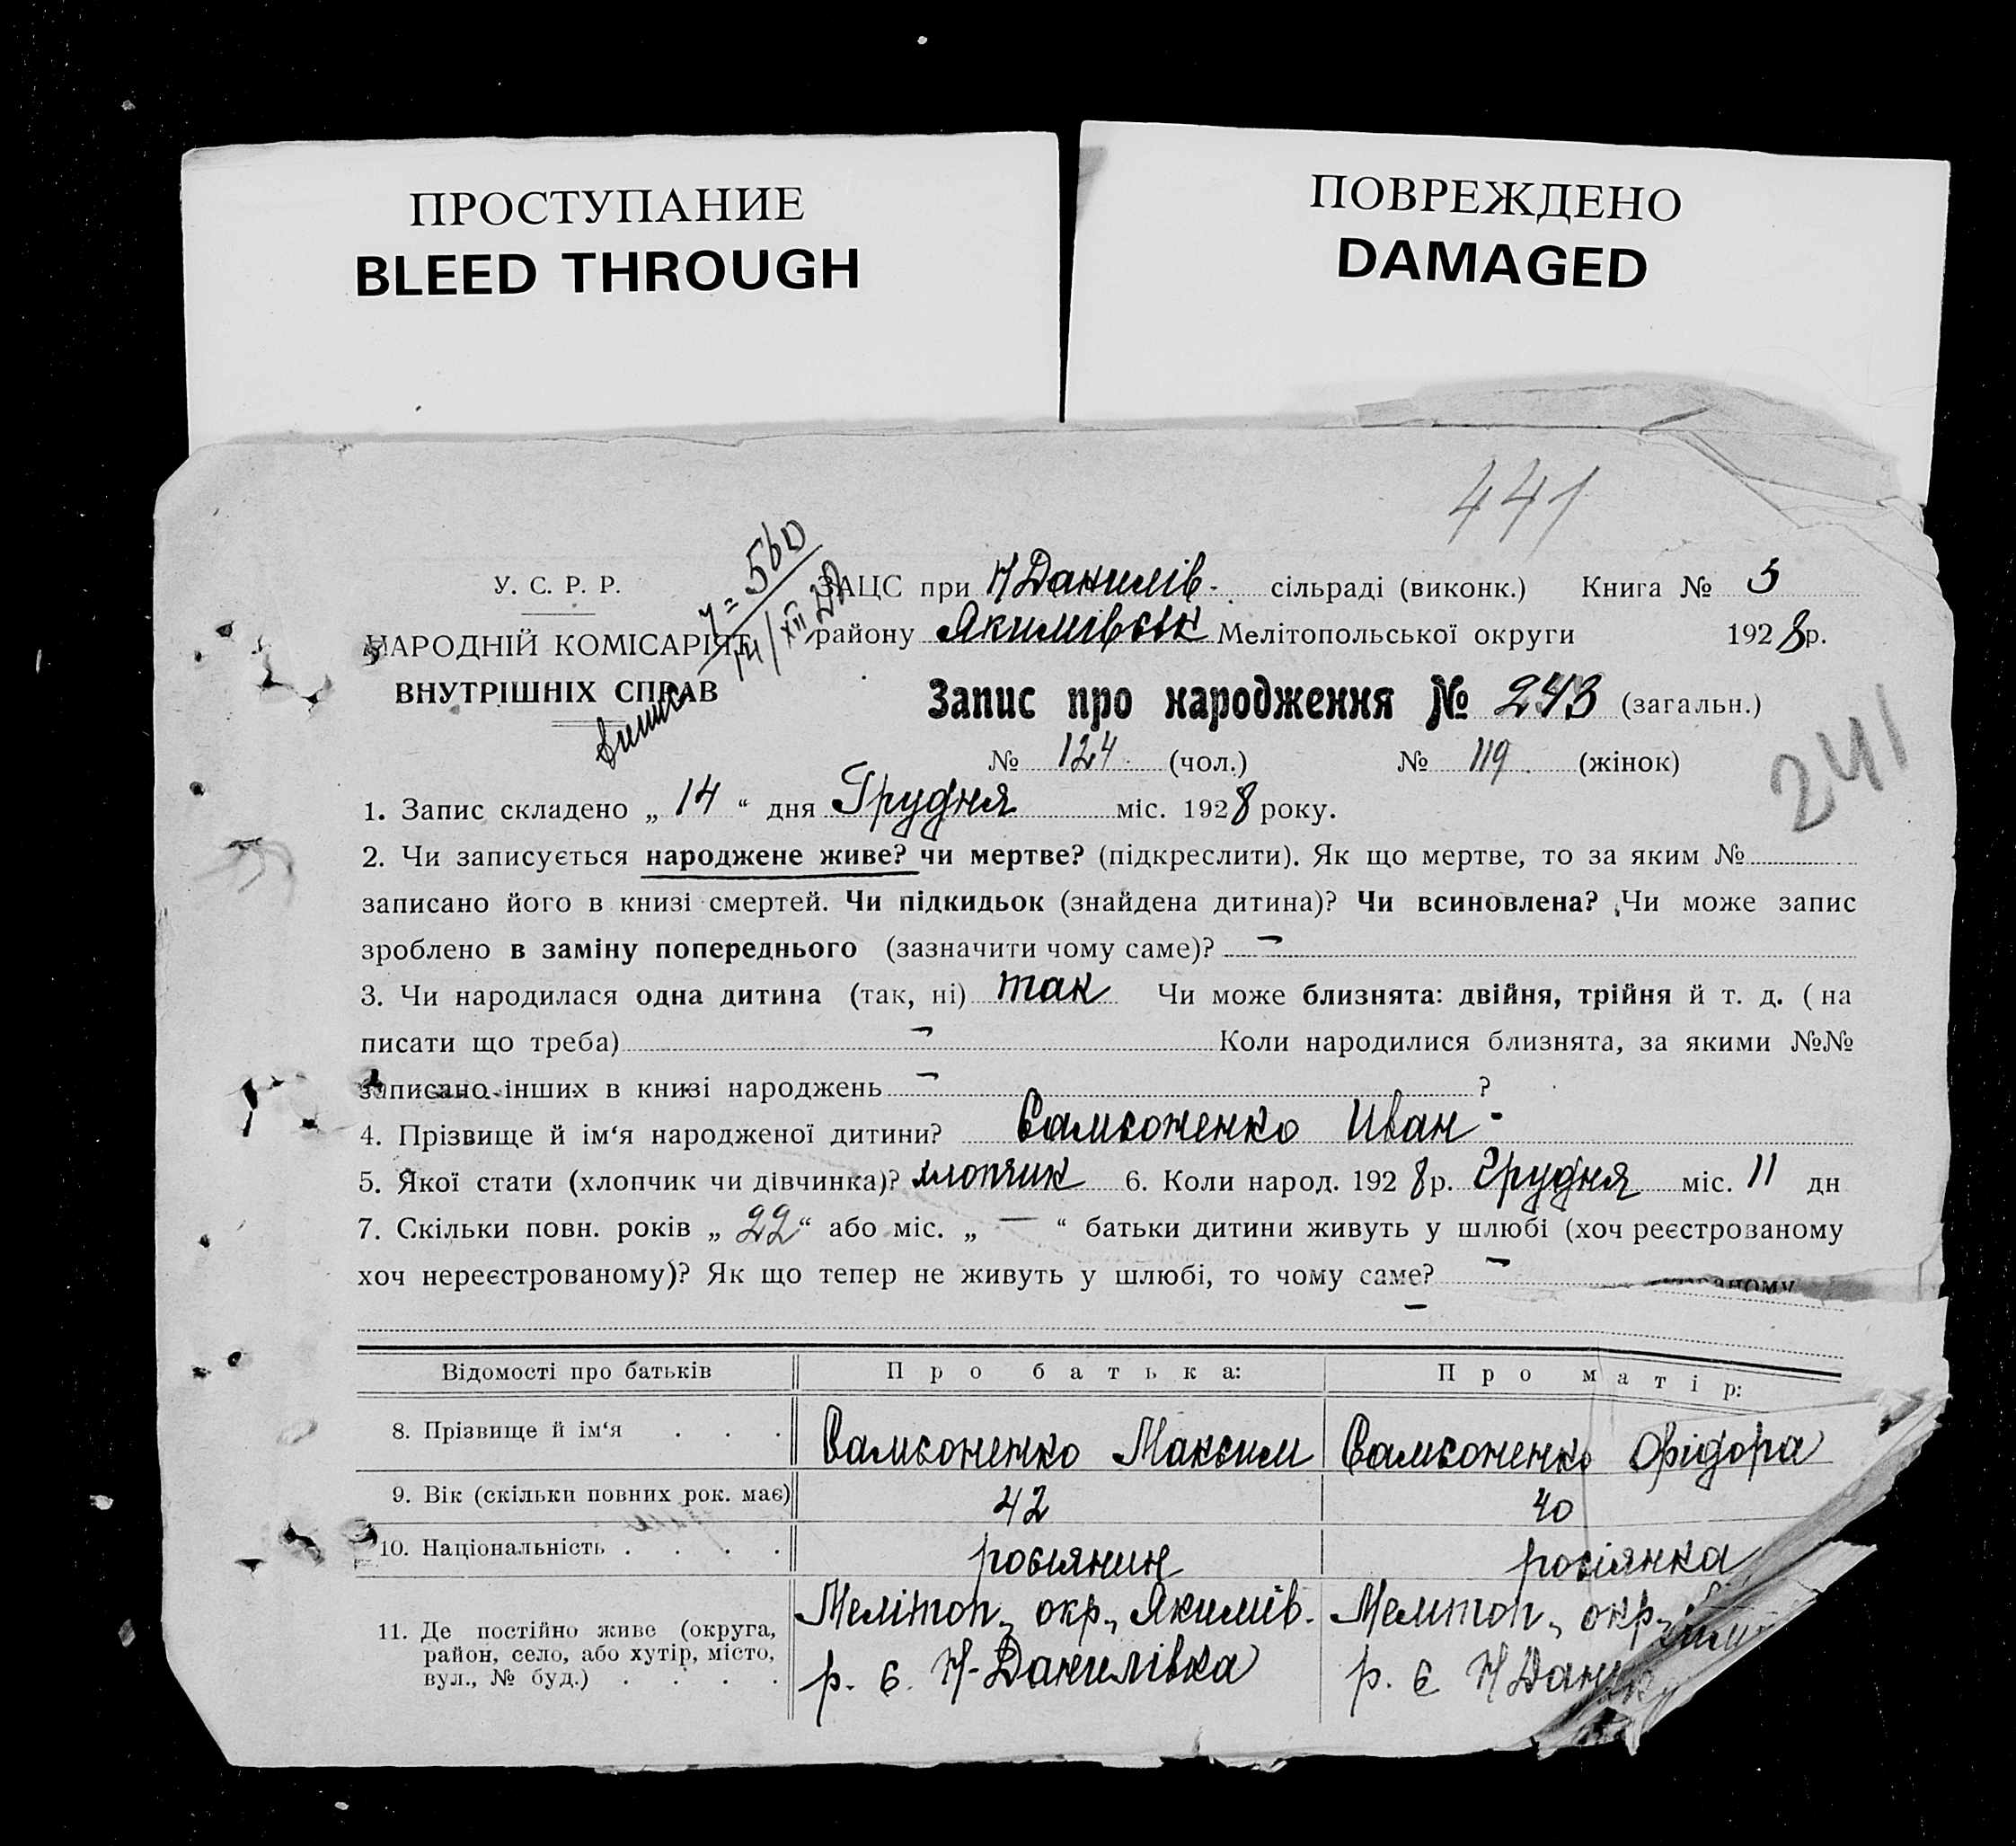 ПРОСТУПАНИЕ
BLEED THROUGH
ПОВРЕЖДЕНО
DAMAGED
441
У. С. Р. Р.
НАРОДНІЙ КОМІСАРІЯТ
ВНУТРІШНІХ СПРАВ
Ч = 560
14/XII 28
ЗАЦС при Н Данилів- сільраді (виконк.) Книга № 5
району Якимівськ Мелітопольської округи 1928 р.
Запис про народження № 243 (загальн.)
№ 124 (чол.) № 119 (жінок)
241
1. Запис складено „ 14 “ дня Грудня міс. 1928 року.
2. Чи записується народжене живе? чи мертве? (підкреслити). Як що мертве, то за яким №
записано його в книзі смертей. Чи підкидьок (знайдена дитина)? Чи всиновлена? Чи може запис
зроблено в заміну попереднього (зазначити чому саме)? —
3. Чи народилася одна дитина (так, ні) так Чи може близнята: двійня, трійня й т. д. ( на
писати що треба) — Коли народилися близнята, за якими №№
записано інших в книзі народжень — ?
4. Прізвище й ім‘я народженої дитини? Самсоненко Иван -
5. Якої стати (хлопчик чи дівчинка)? хлопчик 6. Коли народ. 1928 р. Грудня міс. 11 дн
7. Скільки повн. років „ 22 “ або міс. „ — “ батьки дитини живуть у шлюбі (хоч реєстрованому
хоч нереєстрованому)? Як що тепер не живуть у шлюбі, то чому саме? —
—
Відомості про батьків Про батька: Про матір:
8. Прізвище й ім‘я . . . Самсоненко Максим Самсоненко Фідора
9. Вік (скільки повних рок. має) 42 40
10. Національність . . . . росіянин росіянка
11. Де постійно живе (округа, район, село, або хутір, місто, вул., № буд.) . . . . Мелітоп. окр., Якимів. Мелітоп. окр.,
р. с. Н-Данилівка р. с Н Дани